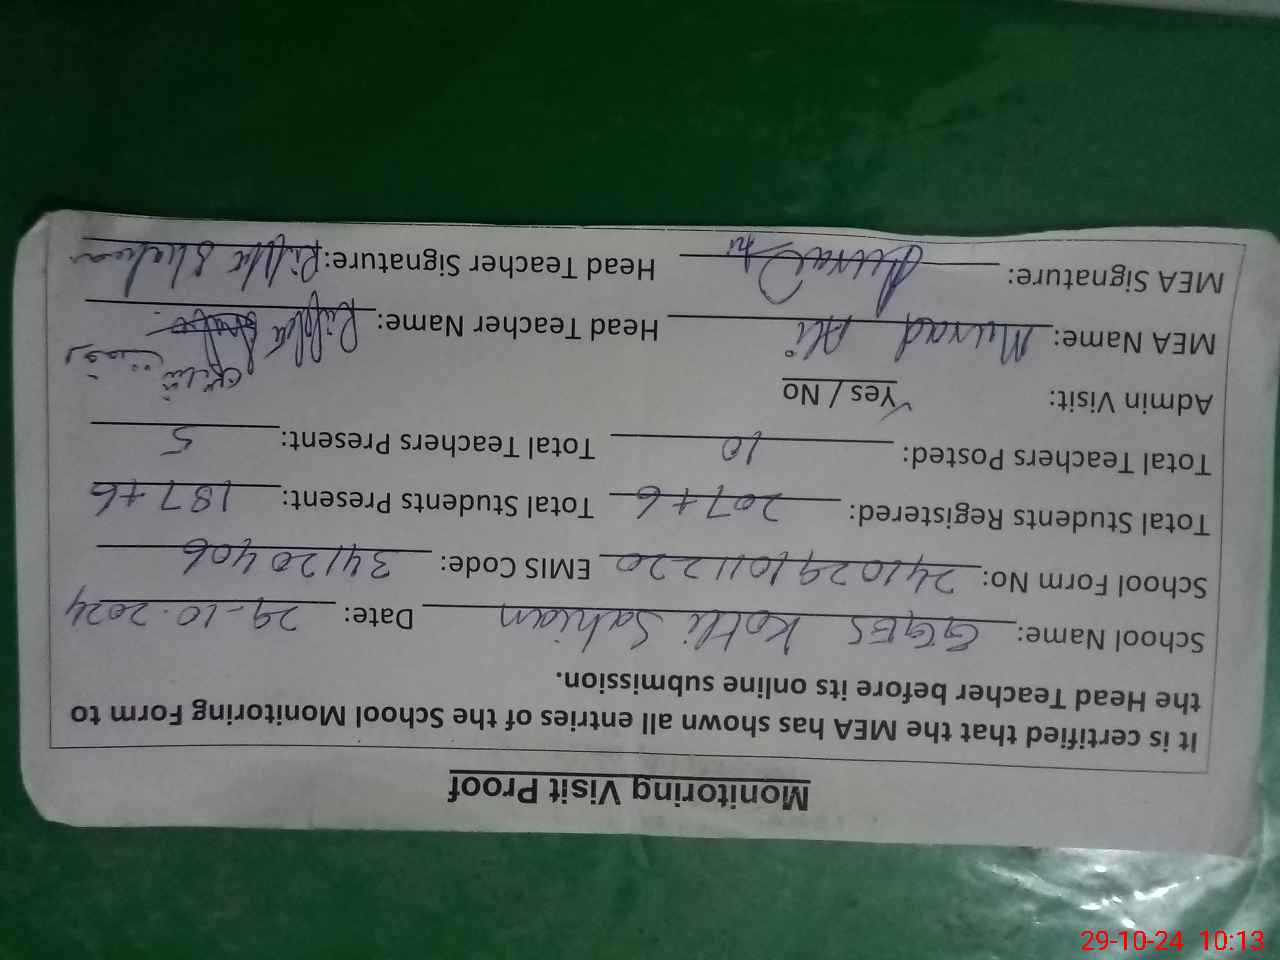 Monitoring Visit Proof
It is certified that the MEA has shown all entries of the School Monitoring Form to
the Head Teacher before its online submission.
School Name: GGES Kotli Sahian Date: 29-10-2024
School Form No: 2410291011220 EMIS Code: 34120406
Total Students Registered: 207+6 Total Students Present: 187+6
Total Teachers Posted: 10 Total Teachers Present: 5
Admin Visit: Yes / No
MEA Name: Murad Ali Head Teacher Name: Riffta
MEA Signature: Head Teacher Signature: Riffta
29-10-24 10:13